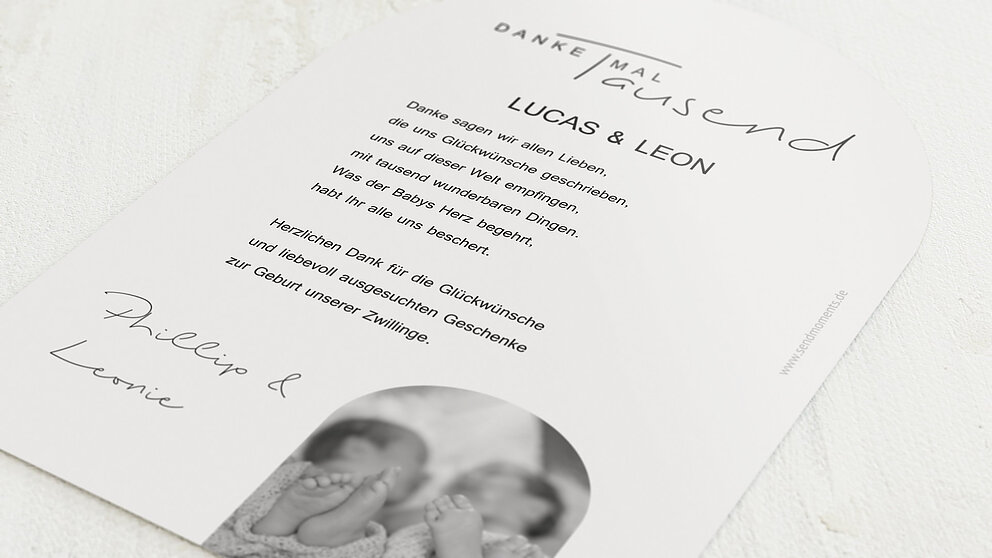 DANKE MAL
Tausend
LUCAS & LEON
Danke sagen wir allen Lieben,
die uns Glückwünsche geschrieben,
uns auf dieser Welt empfingen,
mit tausend wunderbaren Dingen.
Was der Babys Herz begehrt,
habt Ihr alle uns beschert.
Herzlichen Dank für die Glückwünsche
und liebevoll ausgesuchten Geschenke
zur Geburt unserer Zwillinge.
Phillip &
Leonie
www.sendmoments.de